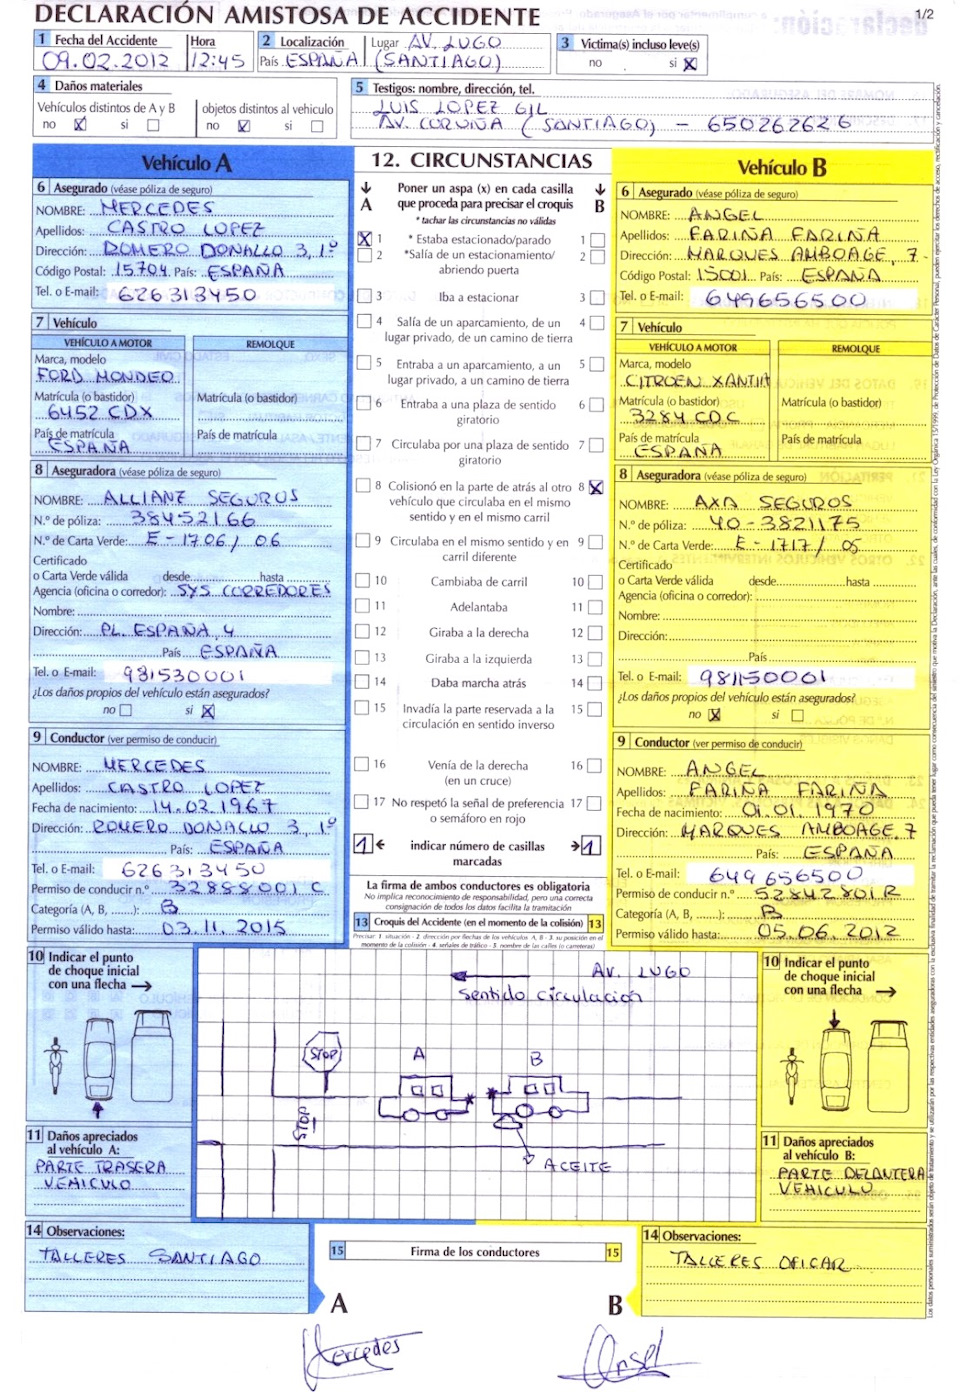 DECLARACIÓN AMISTOSA DE ACCIDENTE
1/2
1 Fecha del Accidente
09.02.2012
Hora
12:45
2 Localización
País ESPAÑA
Lugar AV. LUGO
(SANTIAGO)
3 Victima(s) incluso leve(s)
no si X
4 Daños materiales
Vehículos distintos de A y B
no X si
objetos distintos al vehiculo
no X si
5 Testigos: nombre, dirección, tel.
LUIS LOPEZ GIL
AV. CORUÑA (SANTIAGO) - 650262626
Vehículo A
6 Asegurado (véase póliza de seguro)
NOMBRE: MERCEDES
Apellidos: CASTRO LOPEZ
Dirección: ROMERO DONALLO 3, 1º
Código Postal: 15704 País: ESPAÑA
Tel. o E-mail: 626313450
7 Vehículo
VEHÍCULO A MOTOR
Marca, modelo
FORD MONDEO
Matrícula (o bastidor)
6452 CDX
País de matrícula
ESPAÑA
REMOLQUE
Matrícula (o bastidor)
País de matrícula
8 Aseguradora (véase póliza de seguro)
NOMBRE: ALLIANZ SEGUROS
N.º de póliza: 38452166
N.º de Carta Verde: E - 1706/06
Certificado
o Carta Verde válida desde hasta
Agencia (oficina o corredor): SYS CORREDORES
Nombre:
Dirección: PL. ESPAÑA, 4
País ESPAÑA
Tel. o E-mail: 981530001
¿Los daños propios del vehículo están asegurados?
no si X
9 Conductor (ver permiso de conducir)
NOMBRE: MERCEDES
Apellidos: CASTRO LOPEZ
Fecha de nacimiento: 14.02.1967
Dirección: ROMERO DONALLO 3, 1º
País: ESPAÑA
Tel. o E-mail: 626313450
Permiso de conducir n.º 32888001 C
Categoría (A, B, ......): B
Permiso válido hasta: 03.11.2015
10 Indicar el punto
de choque inicial
con una flecha →
11 Daños apreciados
al vehículo A:
PARTE TRASERA
VEHICULO
14 Observaciones:
TALLERES SANTIAGO
12. CIRCUNSTANCIAS
A Poner un aspa (x) en cada casilla B
que proceda para precisar el croquis
* tachar las circunstancias no válidas
X 1 * Estaba estacionado/parado 1
2 *Salía de un estacionamiento/ 2
abriendo puerta
3 Iba a estacionar 3
4 Salía de un aparcamiento, de un 4
lugar privado, de un camino de tierra
5 Entraba a un aparcamiento, a un 5
lugar privado, a un camino de tierra
6 Entraba a una plaza de sentido 6
giratorio
7 Circulaba por una plaza de sentido 7
giratorio
8 Colisionó en la parte de atrás al otro 8 X
vehículo que circulaba en el mismo
sentido y en el mismo carril
9 Circulaba en el mismo sentido y en 9
carril diferente
10 Cambiaba de carril 10
11 Adelantaba 11
12 Giraba a la derecha 12
13 Giraba a la izquierda 13
14 Daba marcha atrás 14
15 Invadía la parte reservada a la 15
circulación en sentido inverso
16 Venía de la derecha 16
(en un cruce)
17 No respetó la señal de preferencia 17
o semáforo en rojo
1 ← indicar número de casillas → 1
marcadas
La firma de ambos conductores es obligatoria
No implica reconocimiento de responsabilidad, pero una correcta
consignación de todos los datos facilita la tramitación
13 Croquis del Accidente (en el momento de la colisión) 13
Precisar: 1. situación - 2. dirección por flechas de los vehículos A, B - 3. su posición en el
momento de la colisión - 4. señales de tráfico - 5. nombre de las calles (o carreteras)
AV. LUGO
sentido circulacion
STOP
A
B
STOP
ACEITE
15 Firma de los conductores 15
A
B
Mercedes
Angel
Vehículo B
6 Asegurado (véase póliza de seguro)
NOMBRE: ANGEL
Apellidos: FARIÑA FARIÑA
Dirección: MARQUES AMBOAGE, 7
Código Postal: 15001 País: ESPAÑA
Tel. o E-mail: 649656500
7 Vehículo
VEHÍCULO A MOTOR
Marca, modelo
CITROEN XANTIA
Matrícula (o bastidor)
3284 CDC
País de matrícula
ESPAÑA
REMOLQUE
Matrícula (o bastidor)
País de matrícula
8 Aseguradora (véase póliza de seguro)
NOMBRE: AXA SEGUROS
N.º de póliza: 40-3821175
N.º de Carta Verde: E - 1717/05
Certificado
o Carta Verde válida desde hasta
Agencia (oficina o corredor):
Nombre:
Dirección:
País
Tel. o E-mail: 981150001
¿Los daños propios del vehículo están asegurados?
no X si
9 Conductor (ver permiso de conducir)
NOMBRE: ANGEL
Apellidos: FARIÑA FARIÑA
Fecha de nacimiento: 01.01.1970
Dirección: MARQUES AMBOAGE, 7
País: ESPAÑA
Tel. o E-mail: 649656500
Permiso de conducir n.º 52842801R
Categoría (A, B, ......): B
Permiso válido hasta: 05.06.2012
10 Indicar el punto
de choque inicial
con una flecha →
11 Daños apreciados
al vehículo B:
PARTE DELANTERA
VEHICULO
14 Observaciones:
TALLERES OFICAR